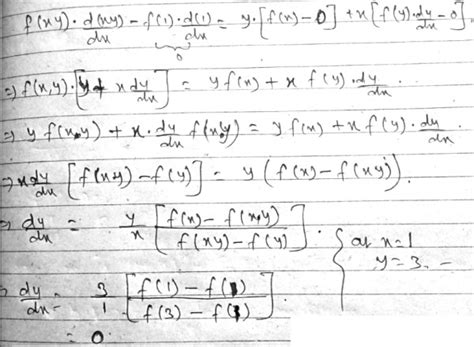 f(xy)·d(xy)/dx − f(1)·d(1)/dx = y·[f(x)−0] + x[f(y)·dy/dx −0]
0
⇒ f(x,y)·[y+ x dy/dx] = y f(x) + x f(y)·dy/dx.
⇒ y f(x,y) + x·dy/dx f(x,y) = y f(x) + x f(y)·dy/dx.
⇒ x dy/dx [f(xy) − f(y)] = y (f(x) − f(xy)).
⇒ dy/dx = y/x [f(x) − f(x,y) / f(xy) − f(y)]. at x=1
y=3. –
⇒ dy/dx = 3/1 [f(1) − f() / f(3) − f()]
= 0.